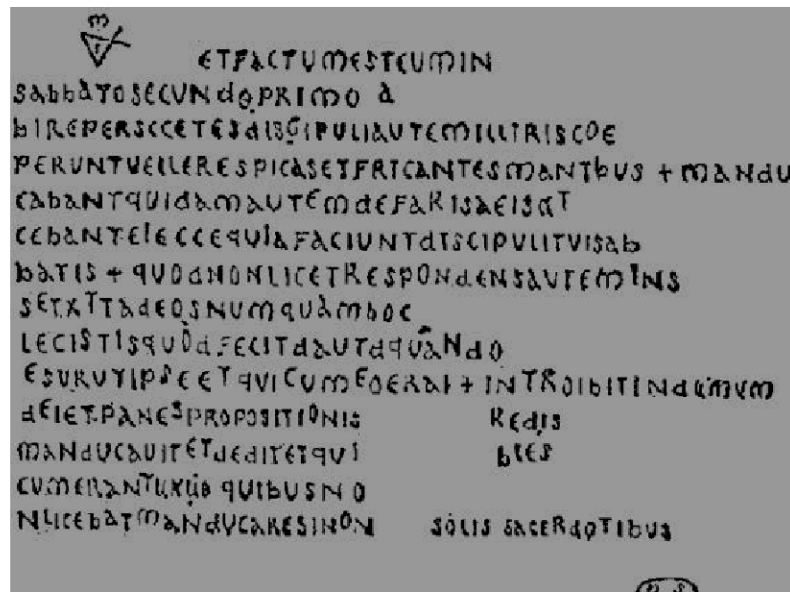 ETFACTUMESTEUMIN
SABBATOSECUNDOPRIMO A
BIREPERSCCETESDISGIPULIAUTEMILLITRISCOE
PERUNTUELLERESPICASETFRTCANTESMANTBUS + MANDU
CABANTQUIDAMAUTEMDEFARISAEISDT
CEBANTEIECCEQUIAFACIUNTDTSCIPULITUISAB
BATIS + QUODNONLICETRESPONDENSAUTEMINS
SETXTTADEOSNUMQUAMBOC
LECISTISQUODFECITDAUTDQUANDO
ESURUTIPSEETQUICUMEOERAI + INTROIBITINDEMUM
DEIETPANESPROPOSITIONIS REDIS
MANDUCAUITETDEDITETQUI BLES
CUMERANTUXUB QUIBUSNO
NLICEBATMANDUCARESINON SOLIS SACERDOTIBUS